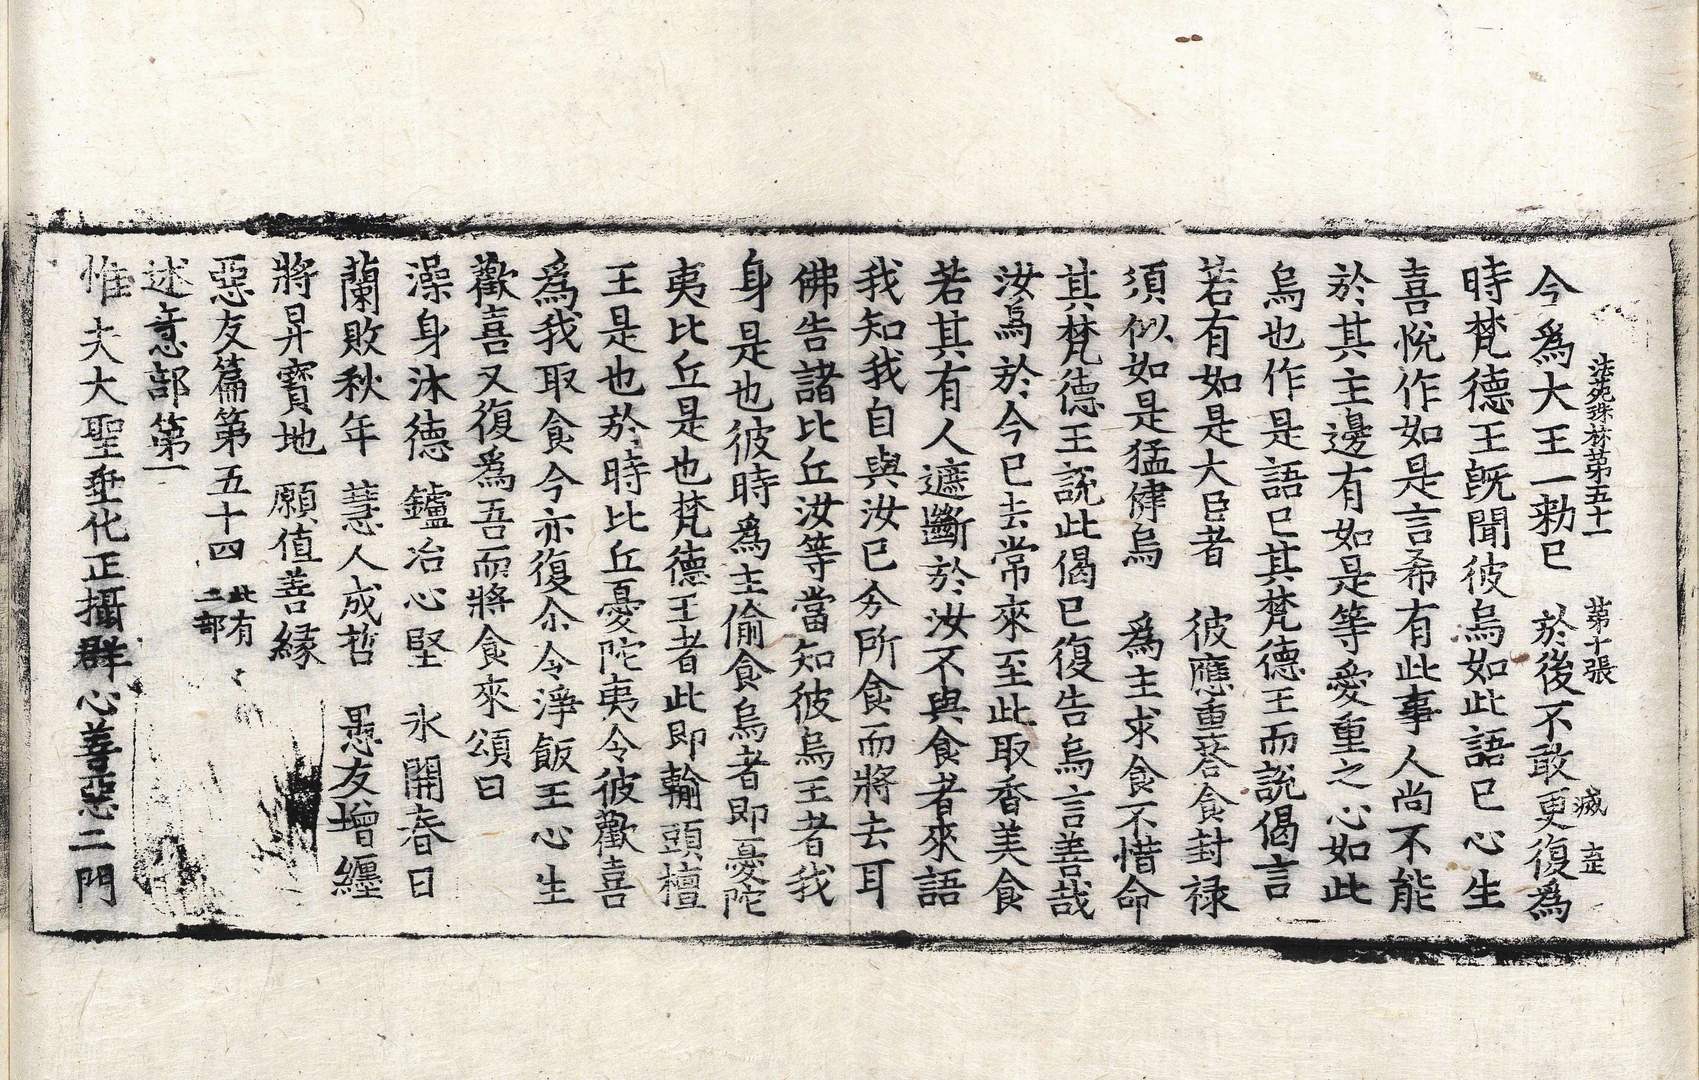 法苑珠林第五十一　第十張　㓕　㱏
今爲大王一勑已　於後不敢更復爲
時梵德王旣聞彼烏如此語已心生
喜悅作如是言希有此事人尚不能
於其主邊有如是等愛重之心如此
烏也作是語已其梵德王而說偈言
若有如是大臣者　彼應重荅食封祿
須似如是猛健烏　爲主求食不惜命
其梵德王說此偈已復告烏言善哉
汝烏於今已去常來至此取香美食
若其有人遮斷於汝不與食者來語
我知我自與汝已分所食而將去耳
佛告諸比丘汝等當知彼烏王者我
身是也彼時爲主偷食烏者即憂陀
夷比丘是也梵德王者此即輸頭檀
王是也於時比丘憂陀夷令彼歡喜
爲我取食今亦復尒令淨飯王心生
歡喜又復爲吾而將食來頌曰
澡身沐德　鑪冶心堅　氷開春日
蘭敗秋年　慧人成哲　愚友增纏
將昇寶地　願值善緣
惡友篇第五十四此有二部
述意部第一
惟夫大聖垂化正攝群心善惡二門